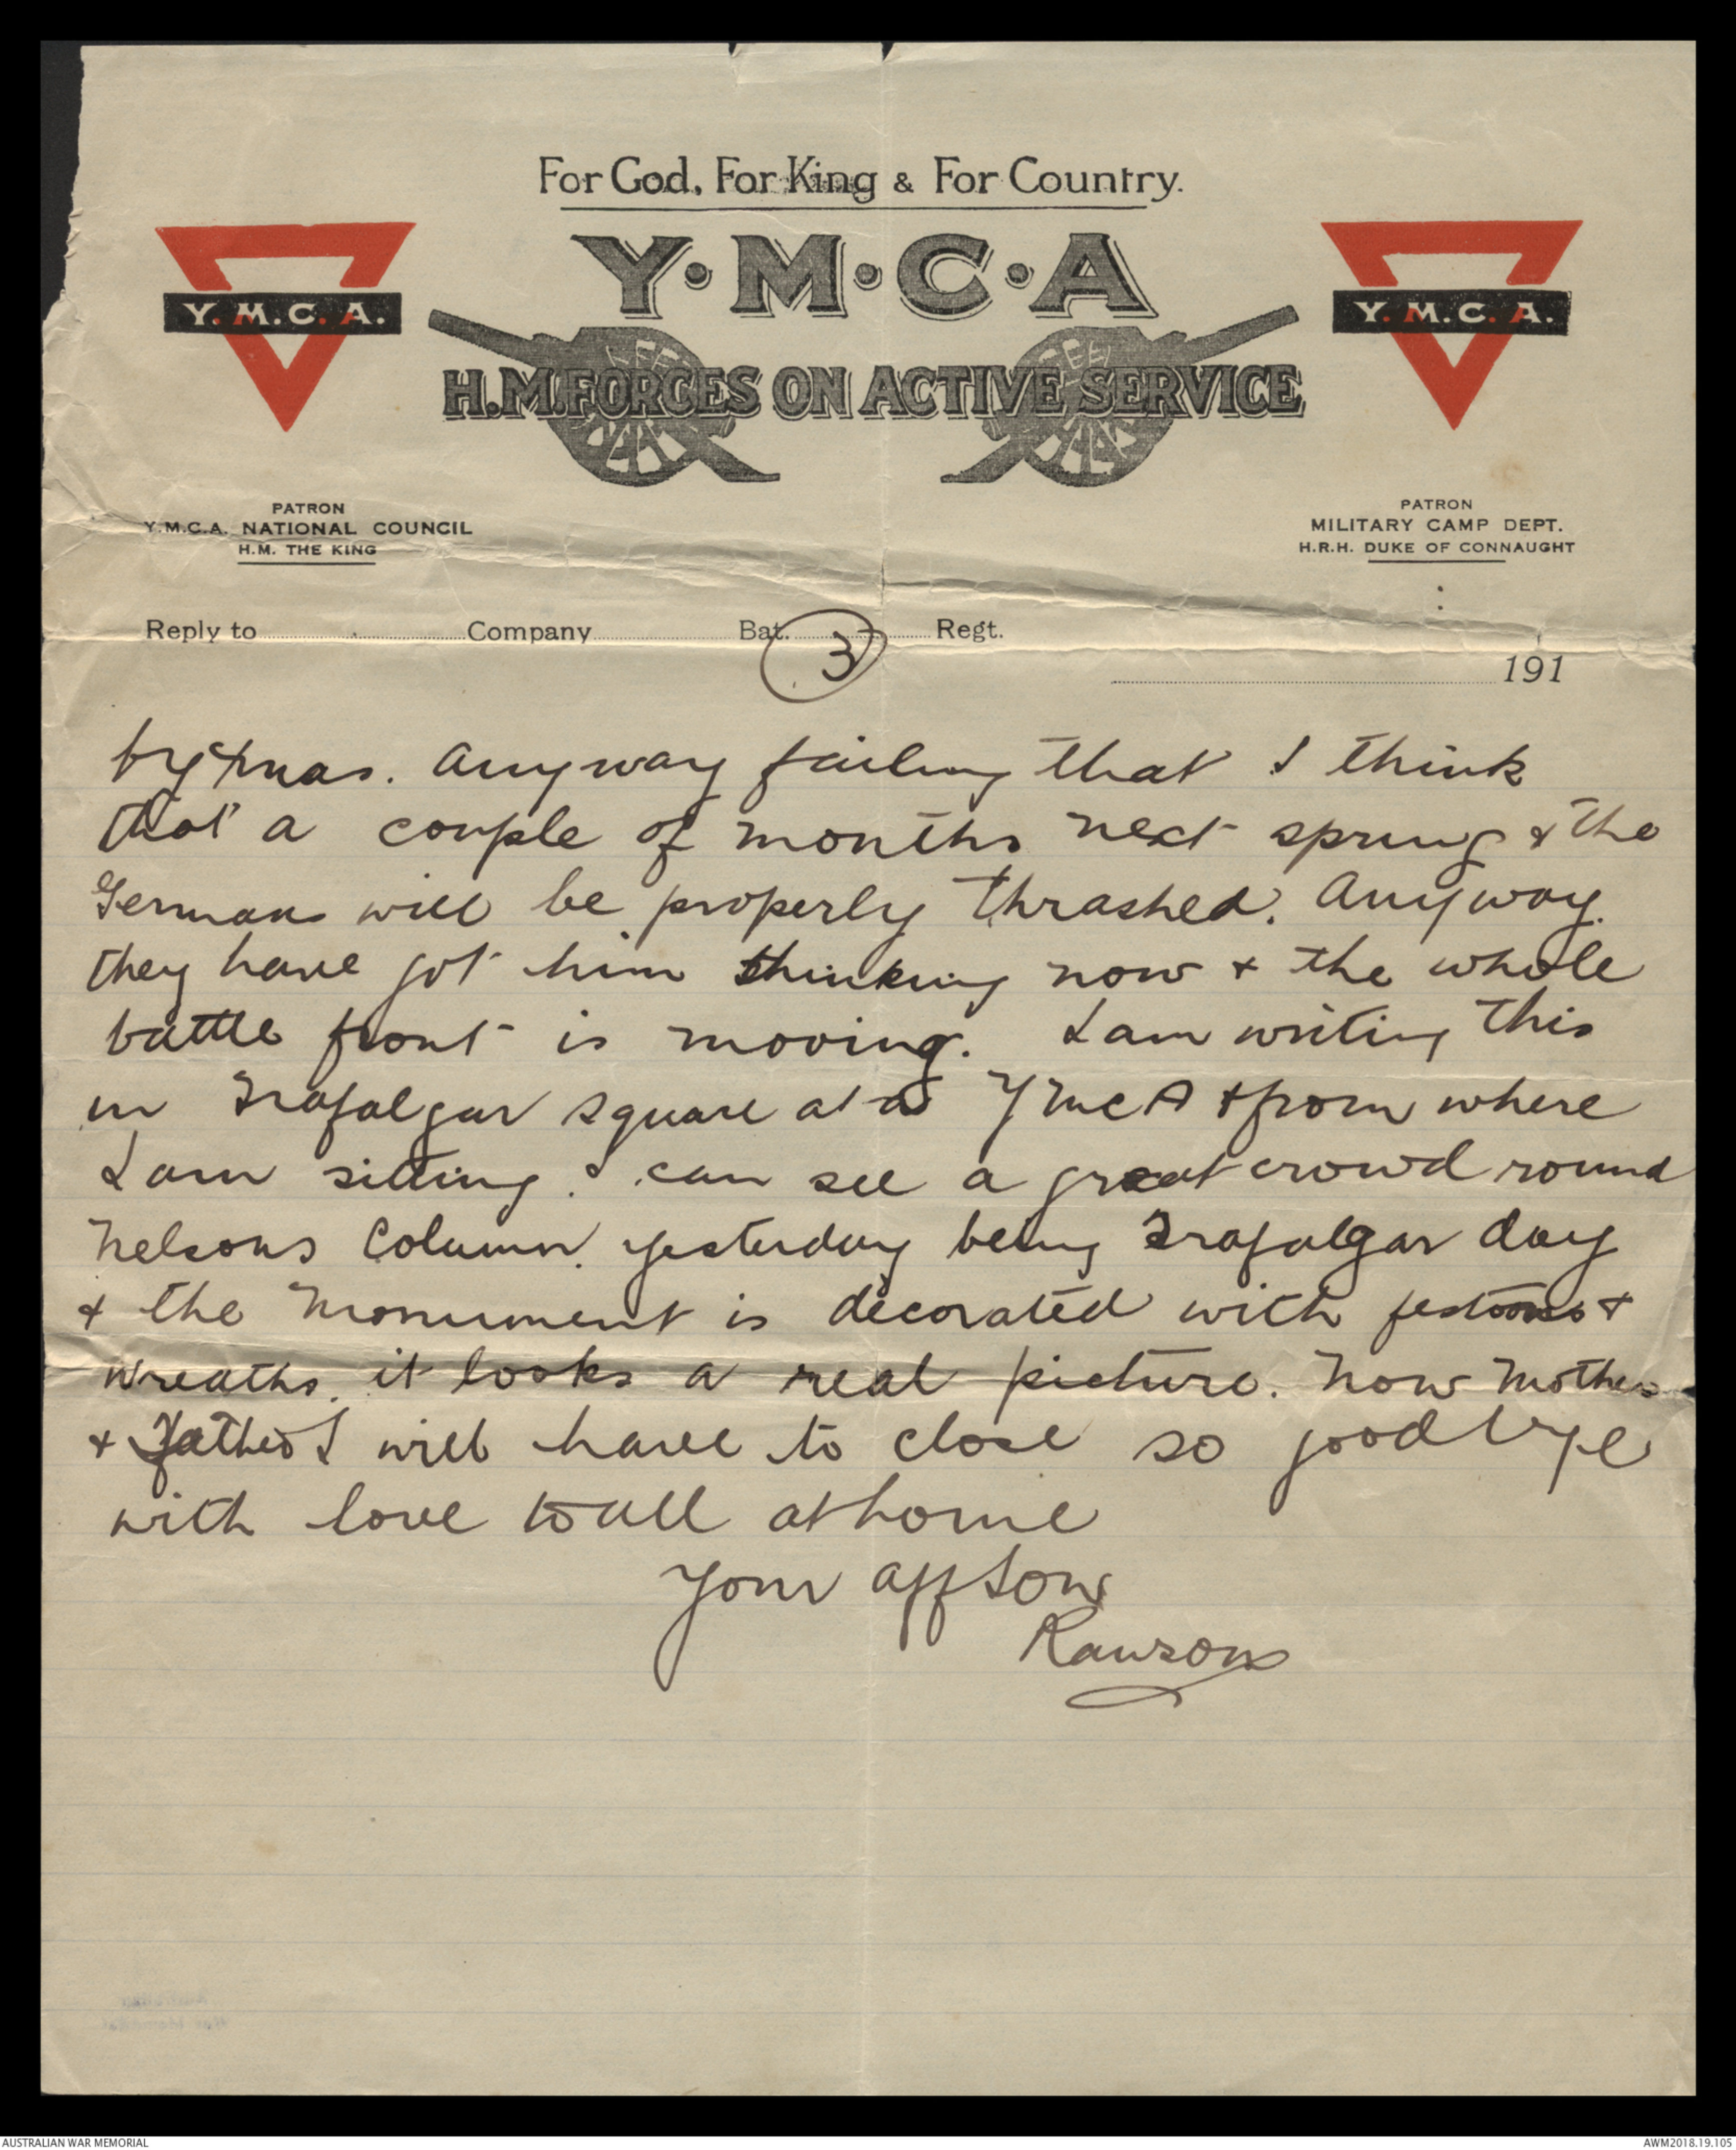 For God, For King & For Country.
Y•M•C•A
Y.M.C.A.
Y.M.C.A.
H.M. FORCES ON ACTIVE SERVICE
PATRON
Y.M.C.A. NATIONAL COUNCIL
H.M. THE KING
PATRON
MILITARY CAMP DEPT.
H.R.H. DUKE OF CONNAUGHT
Reply to Company Bat. Regt.
3
191
by Xmas. Anyway failing that I think
that a couple of months next spring & the
Germans will be properly thrashed. Anyway
they have got him thinking now & the whole
battle front is moving. I am writing this
in Trafalgar Square at a YMCA & from where
I am sitting I can see a great crowd round
Nelsons Column. yesterday being Trafalgar day
& the Monument is decorated with festoons &
wreaths. it looks a real picture. Now Mother
& Father I will have to close so good bye
with love to all at home
Your aff Son
Rawson
AUSTRALIAN WAR MEMORIAL
AWM2018.19.105